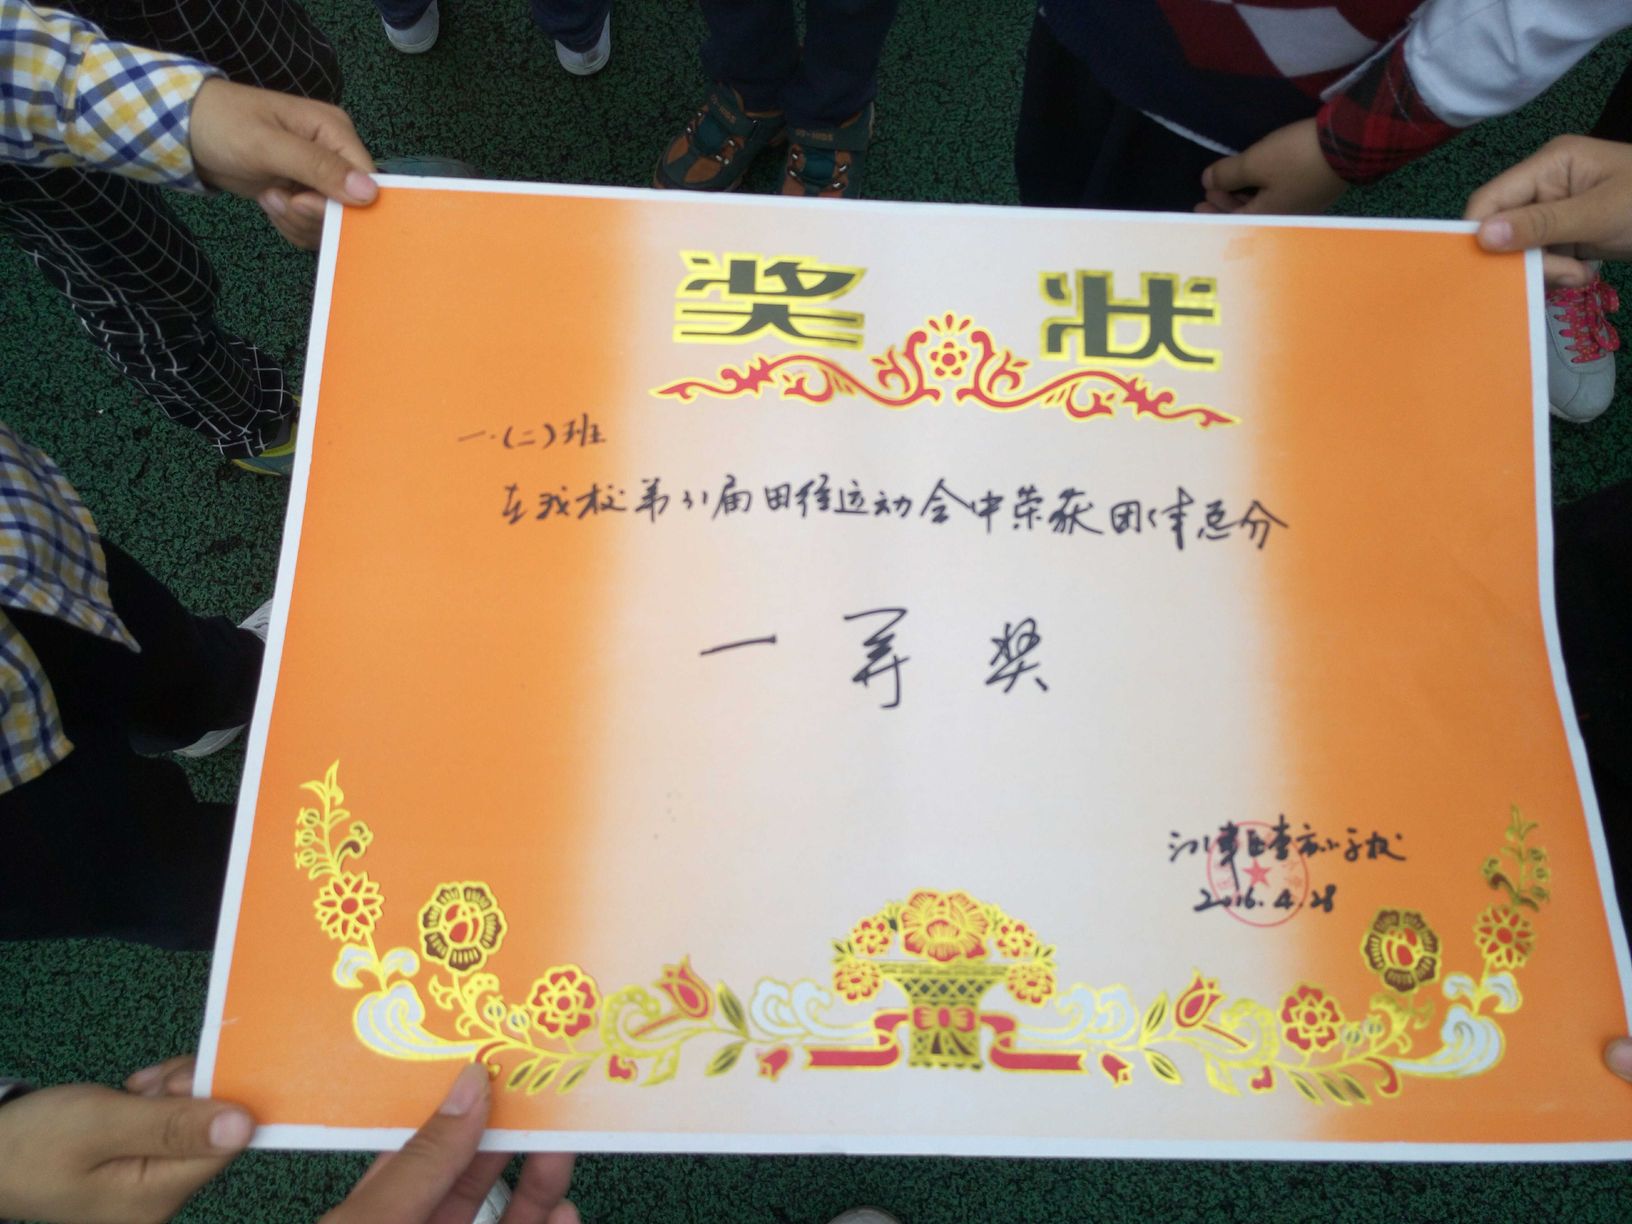 奖 状
一.(二)班
在我校第31届田径运动会中荣获团体总分
一等奖
江津区李市小学校
2016.4.28